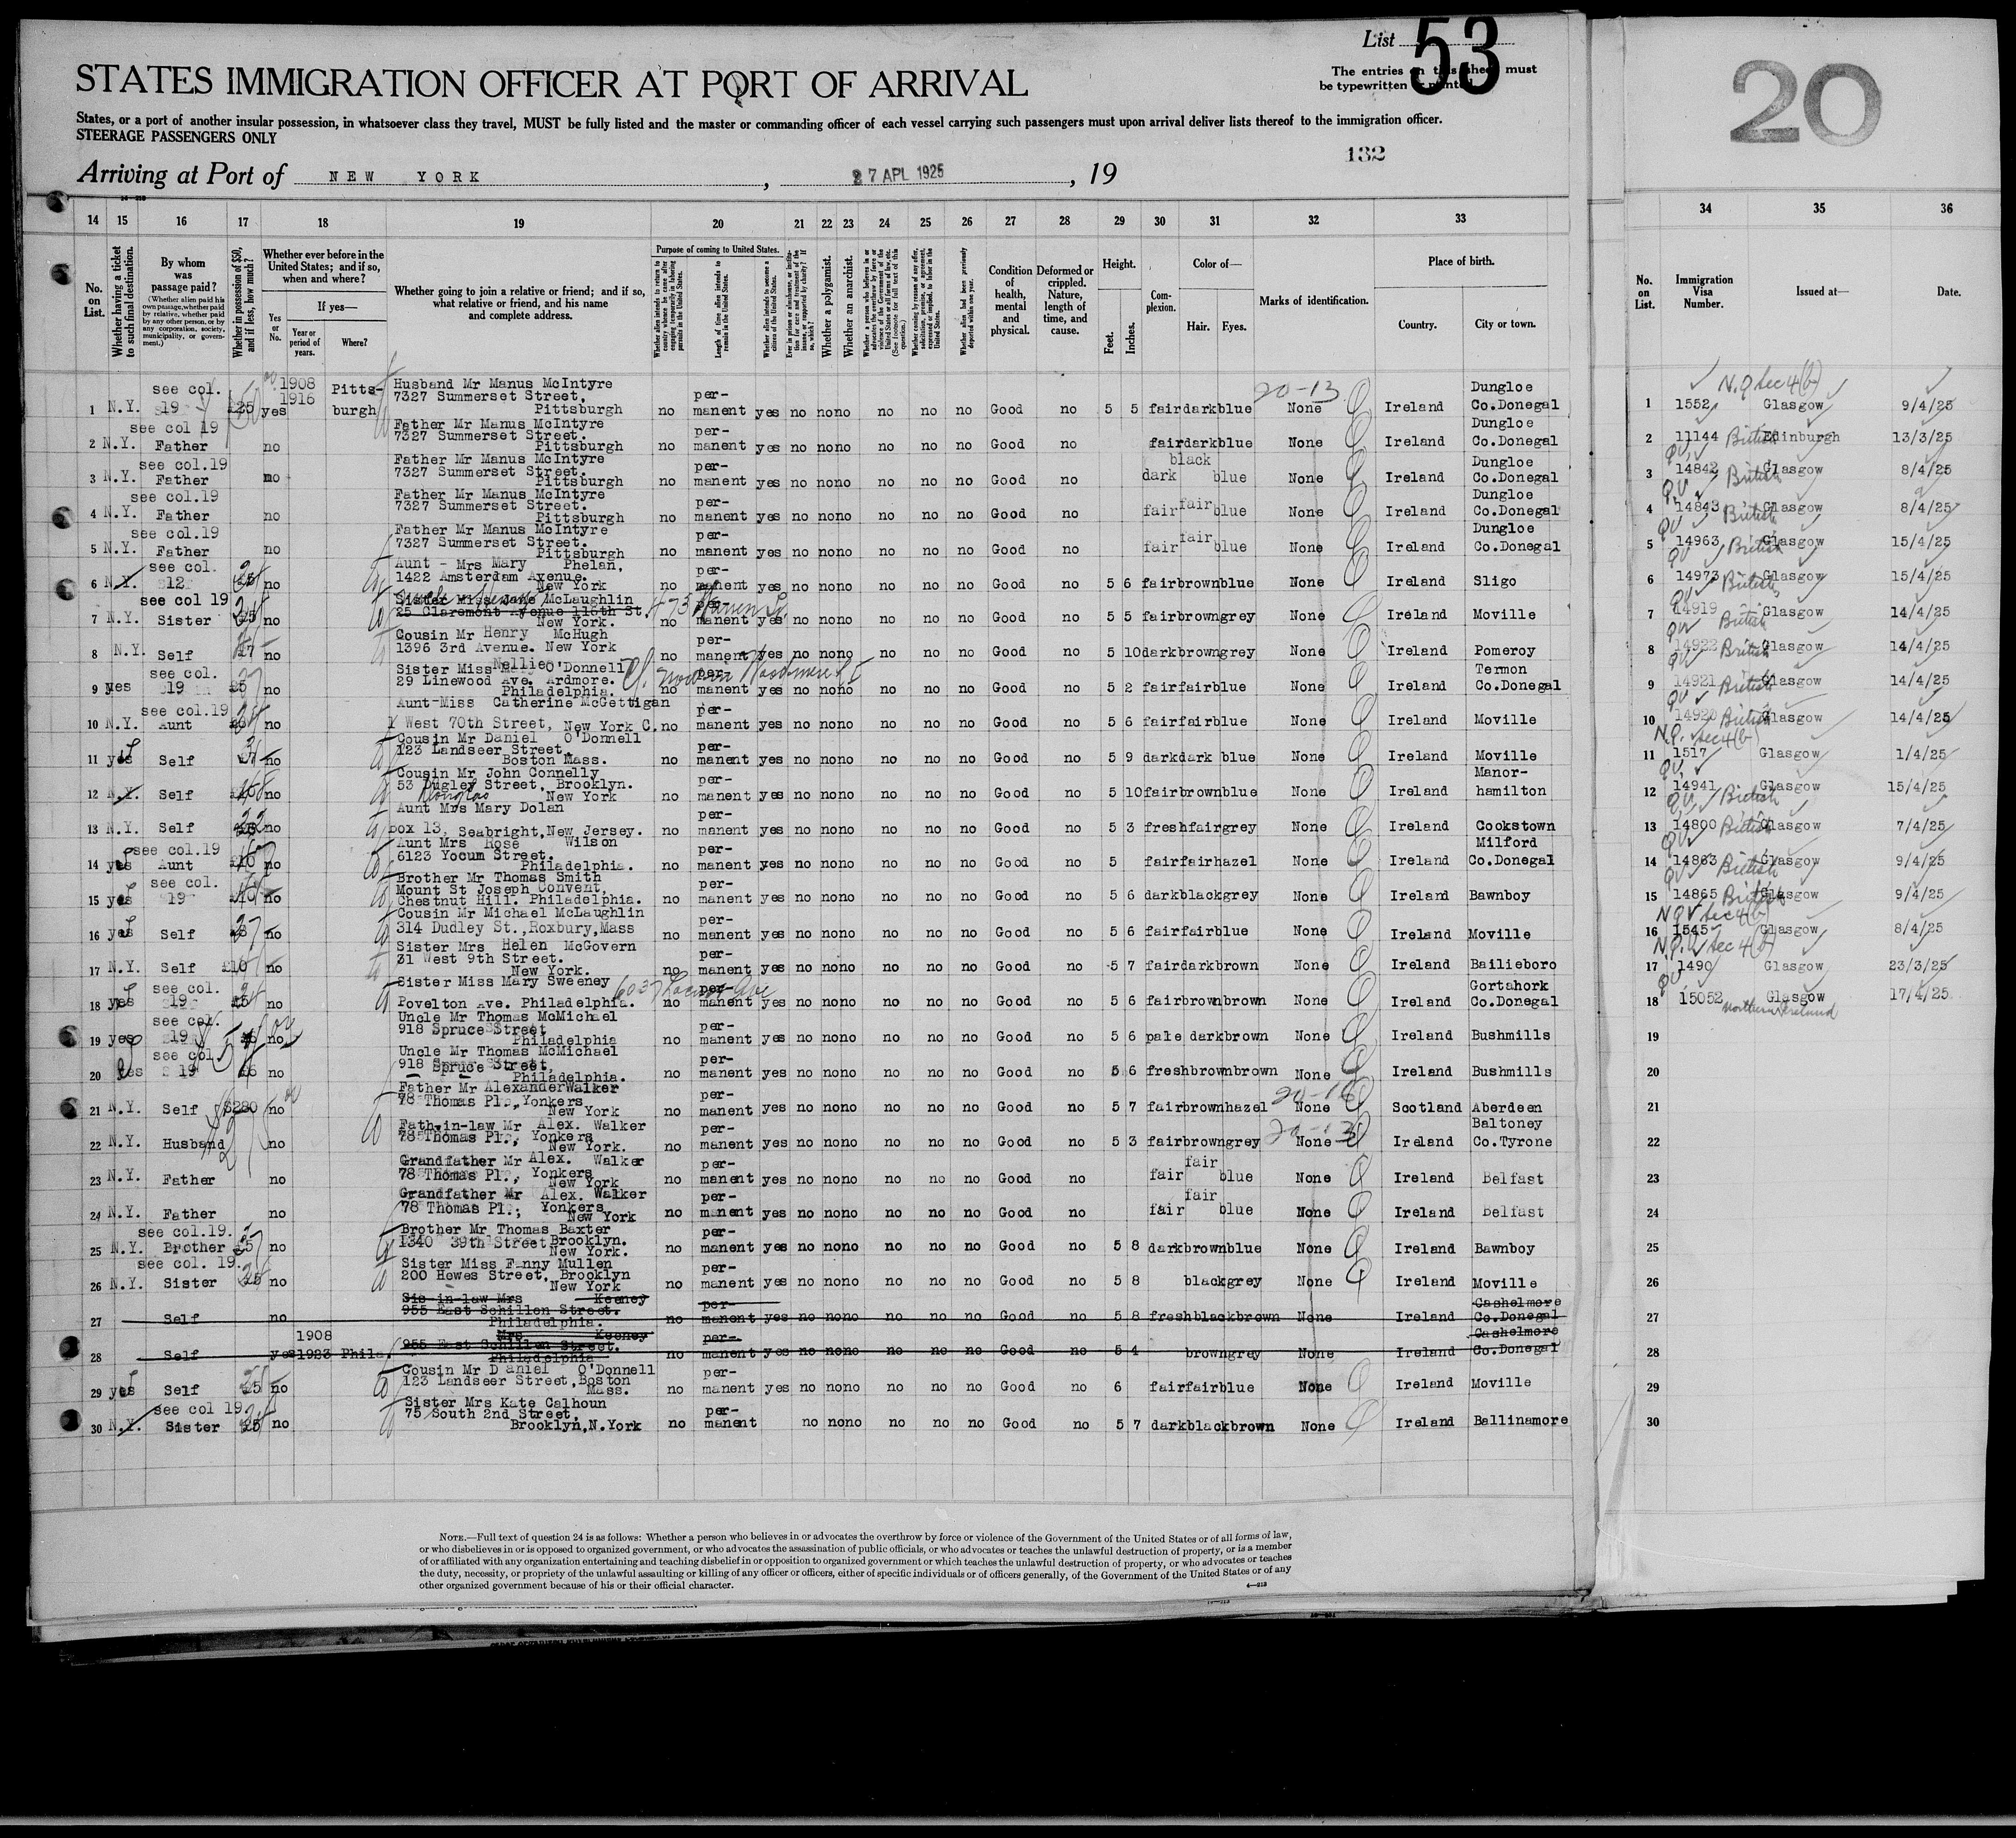 List 53
The entries on this sheet must
be typewritten or printed.
20
STATES IMMIGRATION OFFICER AT PORT OF ARRIVAL
States, or a port of another insular possession, in whatsoever class they travel, MUST be fully listed and the master or commanding officer of each vessel carrying such passengers must upon arrival deliver lists thereof to the immigration officer.
STEERAGE PASSENGERS ONLY
132
Arriving at Port of NEW YORK, 27 APL 1925, 19
14 15 16 17 18 19 20 21 22 23 24 25 26 27 28 29 30 31 32 33 34 35 36
No. on List.
Whether having a ticket to such final destination.
By whom was passage paid?
(Whether alien paid his own passage, whether paid by relative, whether paid by any other person, or by any corporation, society, municipality, or government.)
Whether in possession of $50, and if less, how much?
Whether ever before in the United States; and if so, when and where?
Yes or No.
If yes—
Year or period of years.
Where?
Whether going to join a relative or friend; and if so, what relative or friend, and his name and complete address.
Purpose of coming to United States.
Whether alien intends to return to country whence he came after engaging temporarily in laboring pursuits in the United States.
Length of time alien intends to remain in the United States.
Whether alien intends to become a citizen of the United States.
Whether a polygamist.
Whether an anarchist.
Condition of health, mental and physical.
Deformed or crippled. Nature, length of time, and cause.
Height.
Feet.
Inches.
Complexion.
Color of—
Hair.
Eyes.
Marks of identification.
Place of birth.
Country.
City or town.
No. on List.
Immigration Visa Number.
Issued at—
Date.
1 N.Y. see col. 19 £25 yes 1908 1916 Pittsburgh Husband Mr Manus McIntyre 7327 Summerset Street, Pittsburgh no permanent yes no no no no no no Good no 5 5 fair dark blue 20-13 None Ireland Dungloe Co.Donegal 1 1552 N.Q Sec 4(b) Glasgow 9/4/25
2 N.Y. see col 19 Father no Father Mr Manus McIntyre 7327 Summerset Street. Pittsburgh no permanent yes no no no no no no Good no fair dark blue None Ireland Dungloe Co.Donegal 2 11144 British Edinburgh 13/3/25
3 N.Y. see col.19 Father no Father Mr Manus McIntyre 7327 Summerset Street. Pittsburgh no permanent yes no no no no no no Good no dark black blue None Ireland Dungloe Co.Donegal 3 QV 14842 British Glasgow 8/4/25
4 N.Y. see col.19 Father no Father Mr Manus McIntyre 7327 Summerset Street. Pittsburgh no permanent yes no no no no no no Good no fair fair blue None Ireland Dungloe Co.Donegal 4 QV 14843 British Glasgow 8/4/25
5 N.Y. see col.19 Father no Father Mr Manus McIntyre 7327 Summerset Street. Pittsburgh no permanent yes no no no no no no Good no fair fair blue None Ireland Dungloe Co.Donegal 5 QV 14963 British Glasgow 15/4/25
6 N.Y. see col. 12 no Aunt - Mrs Mary Phelan, 1422 Amsterdam Avenue. New York no permanent yes no no no no no no Good no 5 6 fair brown blue None Ireland Sligo 6 QV 14973 British Glasgow 15/4/25
7 N.Y. see col 19 Sister £25 no Sister Miss Jane McLaughlin 25 Claremont Avenue 116th St. New York. 475 Warren St. no permanent yes no no no no no no Good no 5 5 fair brown grey None Ireland Moville 7 QV 14919 British Glasgow 14/4/25
8 N.Y. Self no Cousin Mr Henry McHugh 1396 3rd Avenue. New York no permanent yes no no no no no no Good no 5 10 dark brown grey None Ireland Pomeroy 8 QV 14922 British Glasgow 14/4/25
9 yes see col. 19 £5 no Sister Miss Nellie O'Donnell 29 Linewood Ave. Ardmore. Philadelphia. no permanent yes no no no no no no Good no 5 2 fair fair blue None Ireland Termon Co.Donegal 9 QV 14921 British Glasgow 14/4/25
10 N.Y. see col.19 Aunt no Aunt-Miss Catherine McGettigan 1 West 70th Street, New York C. no permanent yes no no no no no no Good no 5 6 fair fair blue None Ireland Moville 10 QV 14920 British Glasgow 14/4/25
11 yes Self no Cousin Mr Daniel O'Donnell 123 Landseer Street, Boston Mass. no permanent yes no no no no no no Good no 5 9 dark dark blue None Ireland Moville 11 N.Q. Sec 4(b) 1517 Glasgow 1/4/25
12 N.Y. Self no Cousin Mr John Connelly 53 Dugley Street, Brooklyn. Douglas New York no permanent yes no no no no no no Good no 5 10 fair brown blue None Ireland Manorhamilton 12 QV 14941 British Glasgow 15/4/25
13 N.Y. Self no Aunt Mrs Mary Dolan box 13, Seabright, New Jersey. no permanent yes no no no no no no Good no 5 3 fresh fair grey None Ireland Cookstown 13 QV 14800 British Glasgow 7/4/25
14 yes see col.19 Aunt £10 no Aunt Mrs Rose Wilson 6123 Yocum Street. Philadelphia. no permanent yes no no no no no no Good no 5 fair fair hazel None Ireland Milford Co.Donegal 14 QV 14863 British Glasgow 9/4/25
15 yes see col. 19 £10 no Brother Mr Thomas Smith Mount St Joseph Convent, Chestnut Hill. Philadelphia. no permanent yes no no no no no no Good no 5 6 dark black grey None Ireland Bawnboy 15 QV 14865 British Glasgow 9/4/25
16 yes Self no Cousin Mr Michael McLaughlin 314 Dudley St., Roxbury, Mass no permanent yes no no no no no no Good no 5 6 fair fair blue None Ireland Moville 16 N.Q. Sec 4(b) 1545 Glasgow 8/4/25
17 N.Y. Self £10 no Sister Mrs Helen McGovern 31 West 9th Street. New York. no permanent yes no no no no no no Good no 5 7 fair dark brown None Ireland Bailieboro 17 N.Q. Sec 4(b) 1490 Glasgow 23/3/25
18 yes see col. 19 £5 no Sister Miss Mary Sweeney Povelton Ave. Philadelphia. 6037 Locust Ave no permanent yes no no no no no no Good no 5 6 fair brown brown None Ireland Gortahork Co.Donegal 18 QV 15052 Glasgow Northern Ireland 17/4/25
19 yes see col. 19 no Uncle Mr Thomas McMichael 918 Spruce Street Philadelphia no permanent yes no no no no no no Good no 5 6 pale dark brown None Ireland Bushmills 19
20 yes see col 19 no Uncle Mr Thomas McMichael 918 Spruce Street, Philadelphia. no permanent yes no no no no no no Good no 5 6 fresh brown brown None Ireland Bushmills 20
21 N.Y. Self $280 no Father Mr Alexander Walker 78 Thomas Pl., Yonkers New York no permanent yes no no no no no no Good no 5 7 fair brown hazel 20-16 None Scotland Aberdeen 21
22 N.Y. Husband no Fath-in-law Mr Alex. Walker 78 Thomas Pl., Yonkers New York. no permanent yes no no no no no no Good no 5 3 fair brown grey 20-13 None Ireland Baltoney Co.Tyrone 22
23 N.Y. Father no Grandfather Mr Alex. Walker 78 Thomas Pl., Yonkers New York no permanent yes no no no no no no Good no fair fair blue None Ireland Belfast 23
24 N.Y. Father no Grandfather Mr Alex. Walker 78 Thomas Pl., Yonkers New York no permanent yes no no no no no no Good no fair fair blue None Ireland Belfast 24
25 N.Y. see col.19. Brother no Brother Mr Thomas Baxter 1340 39th Street Brooklyn. New York. no permanent yes no no no no no no Good no 5 8 dark brown blue None Ireland Bawnboy 25
26 N.Y. see col. 19. Sister no Sister Miss Fanny Mullen 200 Hewes Street, Brooklyn New York no permanent yes no no no no no no Good no 5 8 black grey None Ireland Moville 26
27 Self no Sis-in-law Mrs Keeney 955 East Schillen Street. Philadelphia. no permanent yes no no no no no no Good no 5 8 fresh black brown None Ireland Cashelmore Co.Donegal 27
28 Self yes 1908 1923 Phila. Mrs Keeney 955 East Schillen Street. Philadelphia no permanent yes no no no no no no Good no 5 4 brown grey None Ireland Cashelmore Co.Donegal 28
29 yes Self £5 no Cousin Mr Daniel O'Donnell 123 Landseer Street, Boston Mass. no permanent yes no no no no no no Good no 6 fair fair blue None Ireland Moville 29
30 N.Y. see col 19 Sister no Sister Mrs Kate Calhoun 75 South 2nd Street, Brooklyn, N.York no permanent no no no no no no Good no 5 7 dark black brown None Ireland Ballinamore 30
NOTE.—Full text of question 24 is as follows: Whether a person who believes in or advocates the overthrow by force or violence of the Government of the United States or of all forms of law,
or who disbelieves in or is opposed to organized government, or who advocates the assassination of public officials, or who advocates or teaches the unlawful destruction of property, or is a member
of or affiliated with any organization entertaining and teaching disbelief in or opposition to organized government or which teaches the unlawful destruction of property, or who advocates or teaches
the duty, necessity, or propriety of the unlawful assaulting or killing of any officer or officers, either of specific individuals or of officers generally, of the Government of the United States or of any
other organized government because of his or their official character.